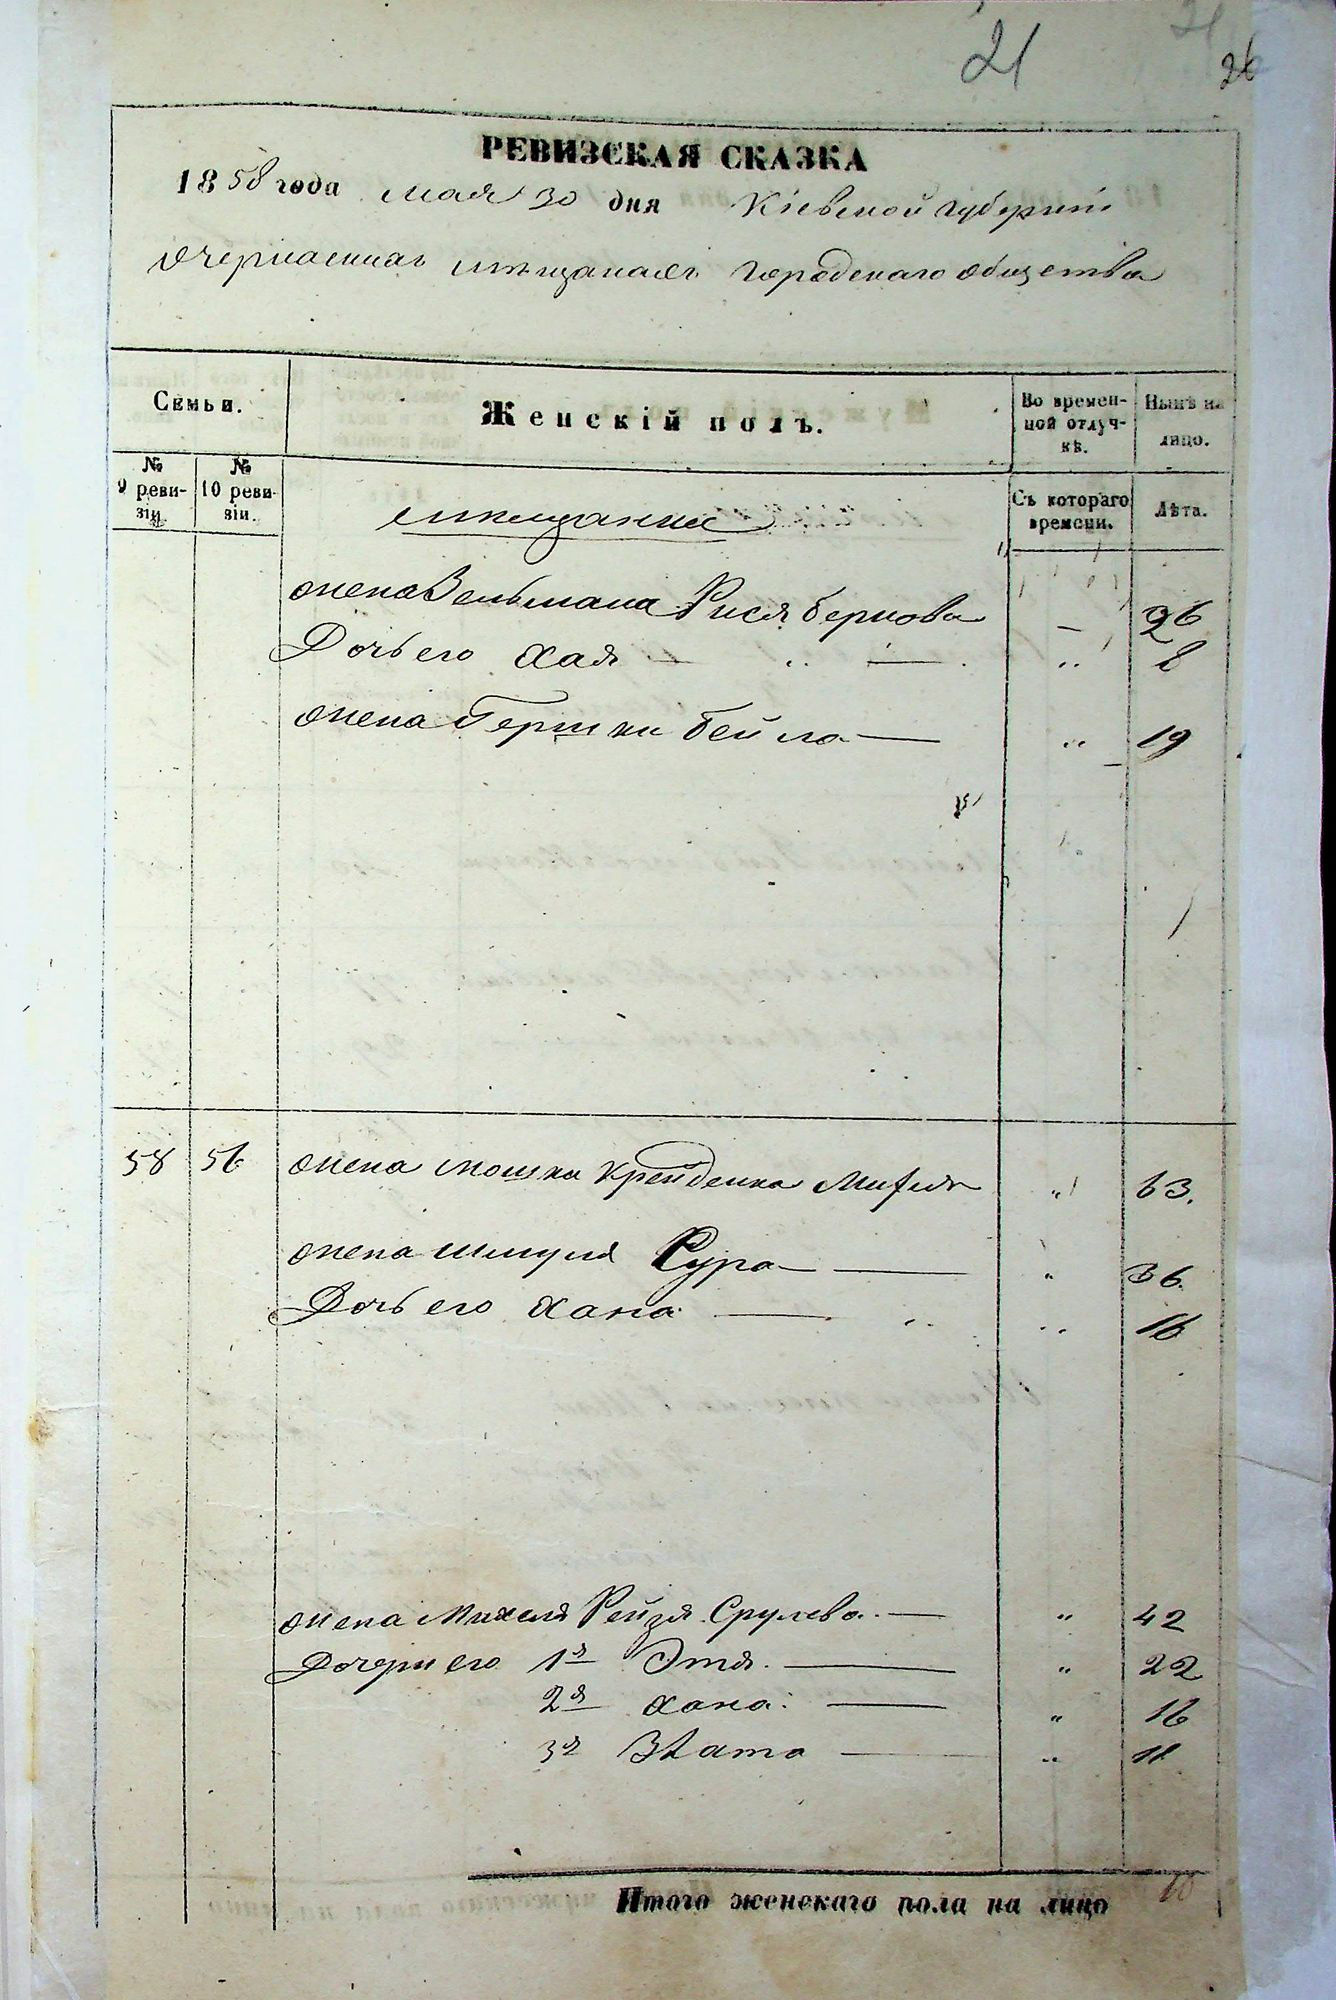 21
26
РЕВИЗСКАЯ СКАЗКА
1858 года мая 30 дня Кіевской губерніи
О черкасскихъ мѣщанахъ городскаго общества
Семьи.
Женскій полъ.
Во времен-
ной отлуч-
кѣ.
Нынѣ на
лицо.
№
9 реви-
зіи.
№
10 реви-
зіи.
Съ котораго
времени.
Лѣта.
мѣщанки
жена Зельмана Рися Беркова — 26
Дочь его Хая — „ — „ 8
жена Гершки Бейла — „ 19
58 56 жена Мошка Крейденка „ 63.
жена Шмуля Сура — „ 36.
Дочь его Хана — „ „ 16
жена Михеля Рейзя Срулева — „ 42
Дочери его 1я Этя. — „ 22
2я Хана. — „ 16
3я Злата — „ 11
Итого женскаго пола на лицо 10